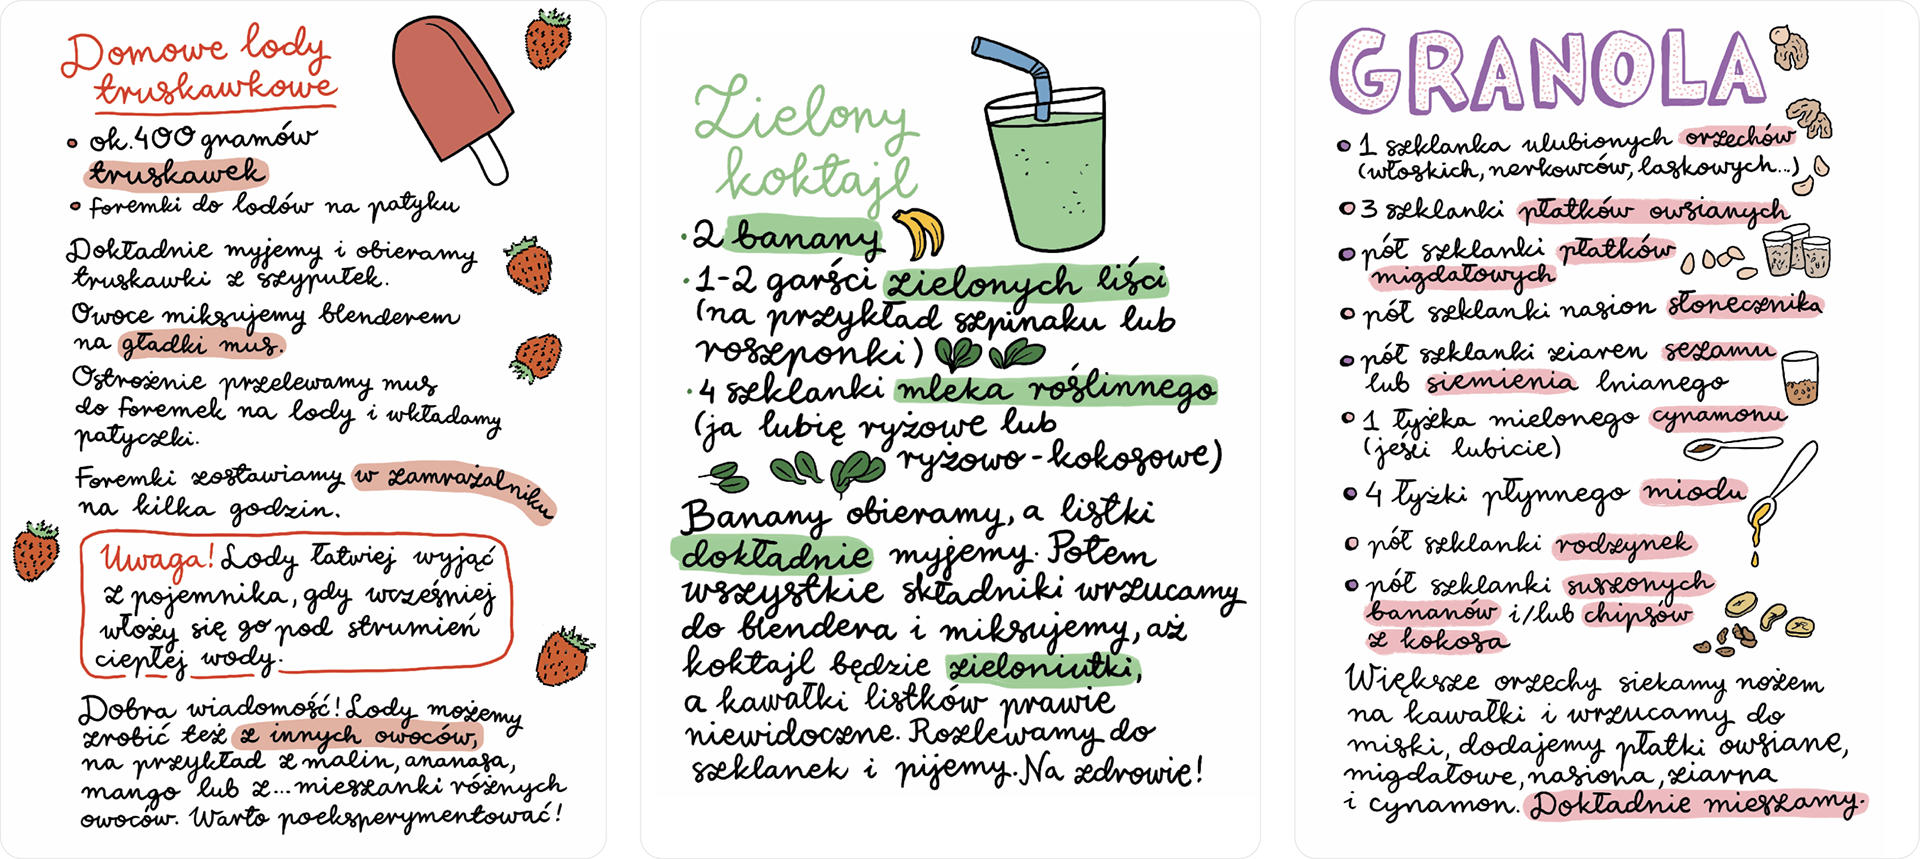 Domowe lody
truskawkowe
• ok. 400 gramów
truskawek
• foremki do lodów na patyku
Dokładnie myjemy i obieramy
truskawki z szypułek.
Owoce miksujemy blenderem
na gładki mus.
Ostrożnie przelewamy mus
do foremek na lody i wkładamy
patyczki.
Foremki zostawiamy w zamrażalniku
na kilka godzin.
Uwaga! Lody łatwiej wyjąć
z pojemnika, gdy wcześniej
włoży się go pod strumień
ciepłej wody.
Dobra wiadomość! Lody możemy
zrobić też z innych owoców,
na przykład z malin, ananasa,
mango lub z... mieszanki różnych
owoców. Warto poeksperymentować!
Zielony
koktajl
• 2 banany
• 1-2 garści zielonych liści
(na przykład szpinaku lub
roszponki)
• 4 szklanki mleka roślinnego
(ja lubię ryżowe lub
ryżowo-kokosowe)
Banany obieramy, a listki
dokładnie myjemy. Potem
wszystkie składniki wrzucamy
do blendera i miksujemy, aż
koktajl będzie zieloniutki,
a kawałki listków prawie
niewidoczne. Rozlewamy do
szklanek i pijemy. Na zdrowie!
GRANOLA
• 1 szklanka ulubionych orzechów
(włoskich, nerkowców, laskowych...)
• 3 szklanki płatków owsianych
• pół szklanki płatków
migdałowych
• pół szklanki nasion słonecznika
• pół szklanki ziaren sezamu
lub siemienia lnianego
• 1 łyżka mielonego cynamonu
(jeśli lubicie)
• 4 łyżki płynnego miodu
• pół szklanki rodzynek
• pół szklanki suszonych
bananów i/lub chipsów
z kokosa
Większe orzechy siekamy nożem
na kawałki i wrzucamy do
miski, dodajemy płatki owsiane,
migdałowe, nasiona, ziarna
i cynamon. Dokładnie mieszamy.